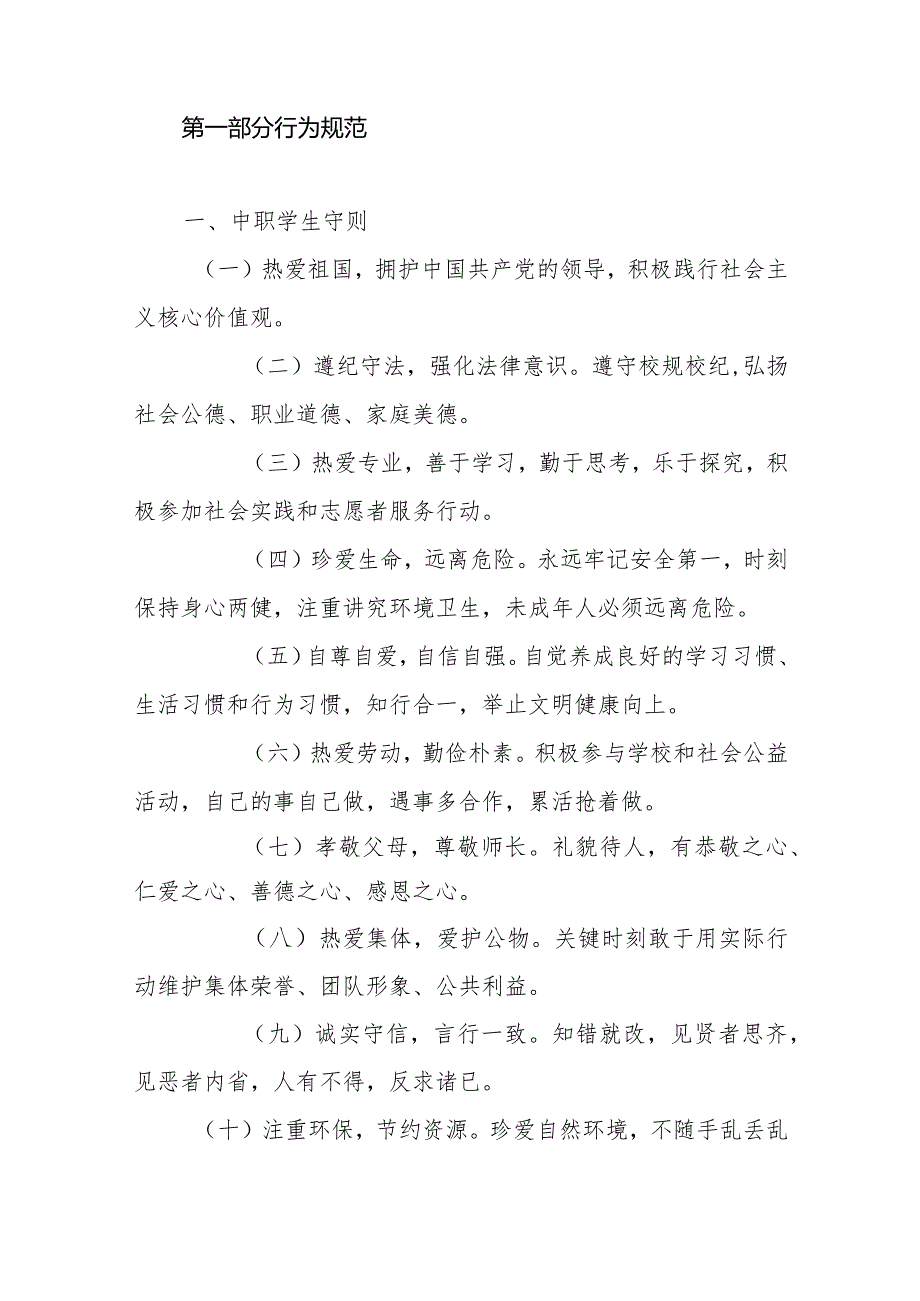 第一部分行为规范
一、中职学生守则
（一）热爱祖国，拥护中国共产党的领导，积极践行社会主
义核心价值观。
（二）遵纪守法，强化法律意识。遵守校规校纪,弘扬
社会公德、职业道德、家庭美德。
（三）热爱专业，善于学习，勤于思考，乐于探究，积
极参加社会实践和志愿者服务行动。
（四）珍爱生命，远离危险。永远牢记安全第一，时刻
保持身心两健，注重讲究环境卫生，未成年人必须远离危险。
（五）自尊自爱，自信自强。自觉养成良好的学习习惯、
生活习惯和行为习惯，知行合一，举止文明健康向上。
（六）热爱劳动，勤俭朴素。积极参与学校和社会公益
活动，自己的事自己做，遇事多合作，累活抢着做。
（七）孝敬父母，尊敬师长。礼貌待人，有恭敬之心、
仁爱之心、善德之心、感恩之心。
（八）热爱集体，爱护公物。关键时刻敢于用实际行
动维护集体荣誉、团队形象、公共利益。
（九）诚实守信，言行一致。知错就改，见贤者思齐，
见恶者内省，人有不得，反求诸已。
（十）注重环保，节约资源。珍爱自然环境，不随手乱丢乱